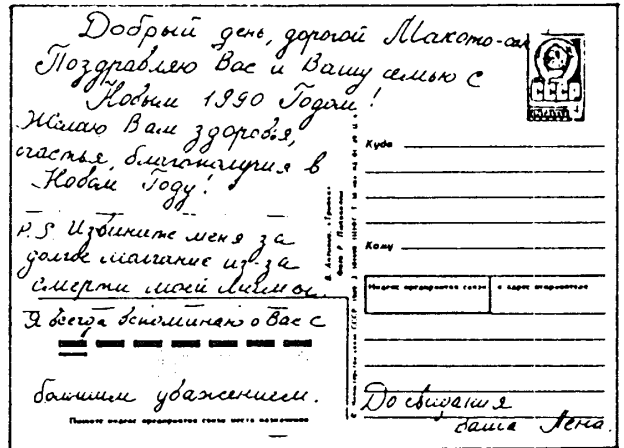 Добрый день, дорогой Макото-сан
Поздравляю Вас и Вашу семью с
Новым 1990 Годом!
Желаю Вам здоровья,
счастья, благополучия в
Новом Году!
P.S Извините меня за
долгое молчание из-за
смерти моей мамы.
Я всегда вспоминаю о Вас с
большим уважением.
Пишите индекс предприятия связи места назначения
СССР
Куда
Кому
Индекс предприятия связи и адрес отправителя
До свидания
ваша Лена.